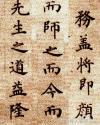 務盖將即顏
而師之而今而
先生之道益隆